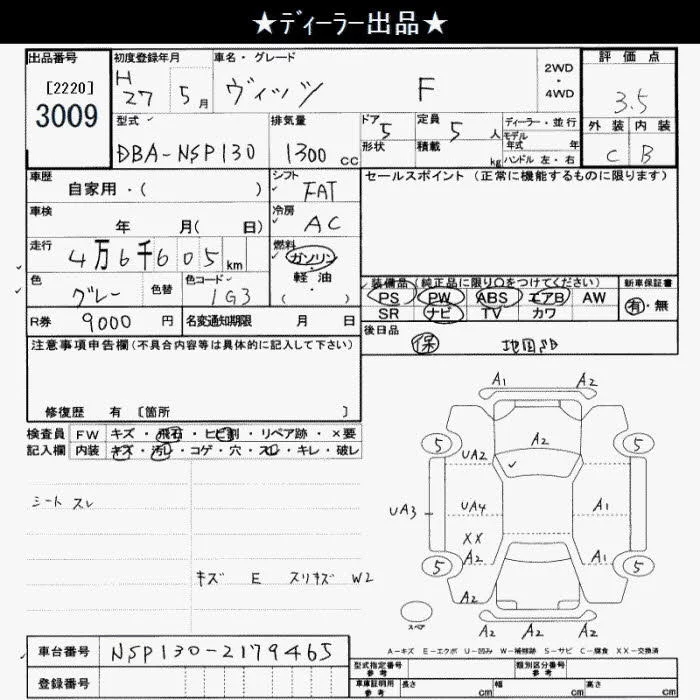 ★ディーラー出品★
出品番号 初度登録年月 車名・グレード 評価点
[2220] 3009 H27 5月 ヴィッツ F 2WD・4WD 3.5
型式 排気量 ドア 定員 ディーラー・並行 外装 内装
DBA-NSP130 1300cc 5 5人 モデル年式 年 C B
形状 積載 kg ハンドル 左・右
車歴 自家用・( ) シフト FAT セールスポイント(正常に機能するものに限ります)
車検 年 月( 日) 冷房 AC
走行 4万6千605km 燃料 ガソリン・軽油・( )
色 グレー 色替 色コード 1G3 装備品(純正品に限り〇をつけてください) 新車保証書
PS PW ABS エアB AW 有・無
R券 9000円 名変通知期限 月 日 SR ナビ TV カワ
注意事項申告欄(不具合内容等は具体的に記入して下さい) 後日品 保 地図
修復歴 有 [箇所 ]
検査員 FW キズ・飛石・ヒビ割・リペア跡・×要
記入欄 内装 キズ・汚レ・コゲ・穴・スレ・キレ・破レ
A1 A2
5 A2 5
UA2
シート スレ
UA3 UA4 A1
XX
A2 A1
キズ E スリキズ W2 5 5
A2
A2 A2 A2
スペア
A-キズ E-エクボ U-凹み W-補修跡 S-サビ C-腐食 XX-交換済
車台番号 NSP130-2179465 型式指定番号 参考 類別区分番号 参考
登録番号 車庫証明用 参考 長さ cm 幅 cm 高さ cm